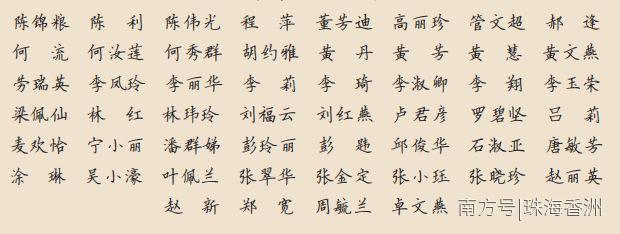 陈锦粮 陈利 陈伟光 程萍 董芳迪 高丽珍 管文超 郝逢
何流 何汝莲 何秀群 胡约雅 黄丹 黄芳 黄慧 黄文燕
劳瑞英 李凤玲 李丽华 李莉 李琦 李淑卿 李翔 李玉荣
梁佩仙 林红 林玮玲 刘福云 刘红燕 卢君彦 罗碧坚 吕莉
麦欢怡 宁小丽 潘群娣 彭玲丽 彭韪 邱俊华 石淑亚 唐敏芳
涂琳 吴小濠 叶佩兰 张翠华 张金定 张小珏 张晓珍 赵丽英
赵新 郑宽 周毓兰 卓文燕
南方号|珠海香洲